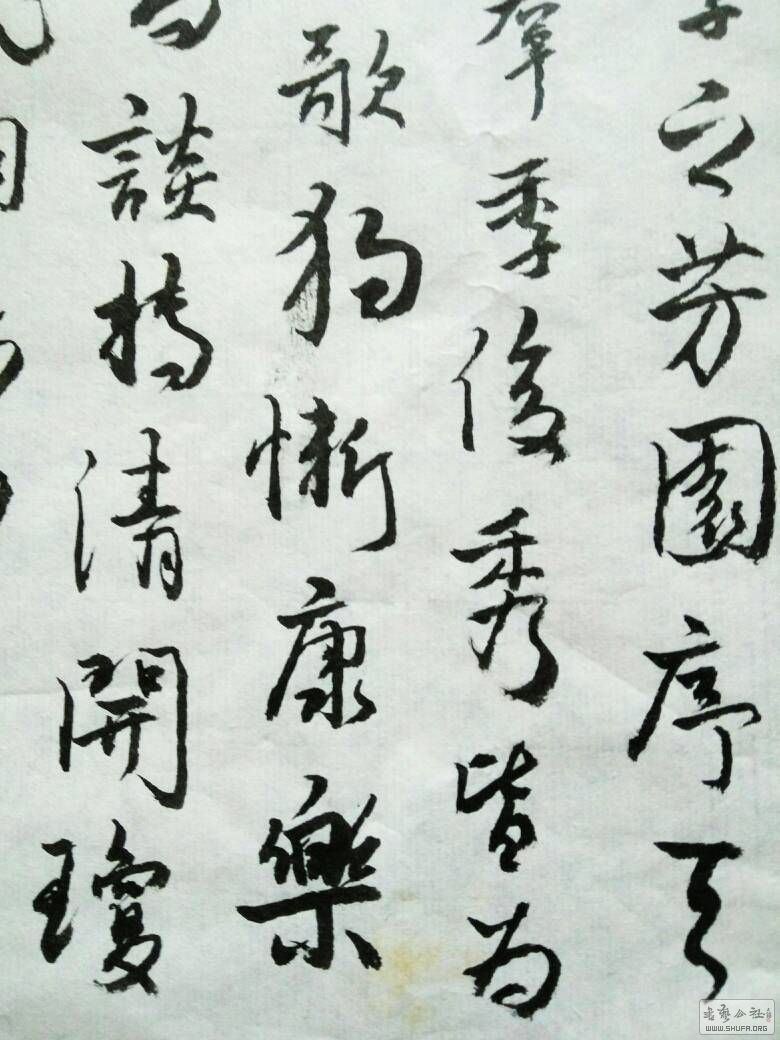 之芳園序天
群季俊秀皆為
歌獨慚康樂
談轉清開瓊
書藝公社
WWW.SHUFA.ORG